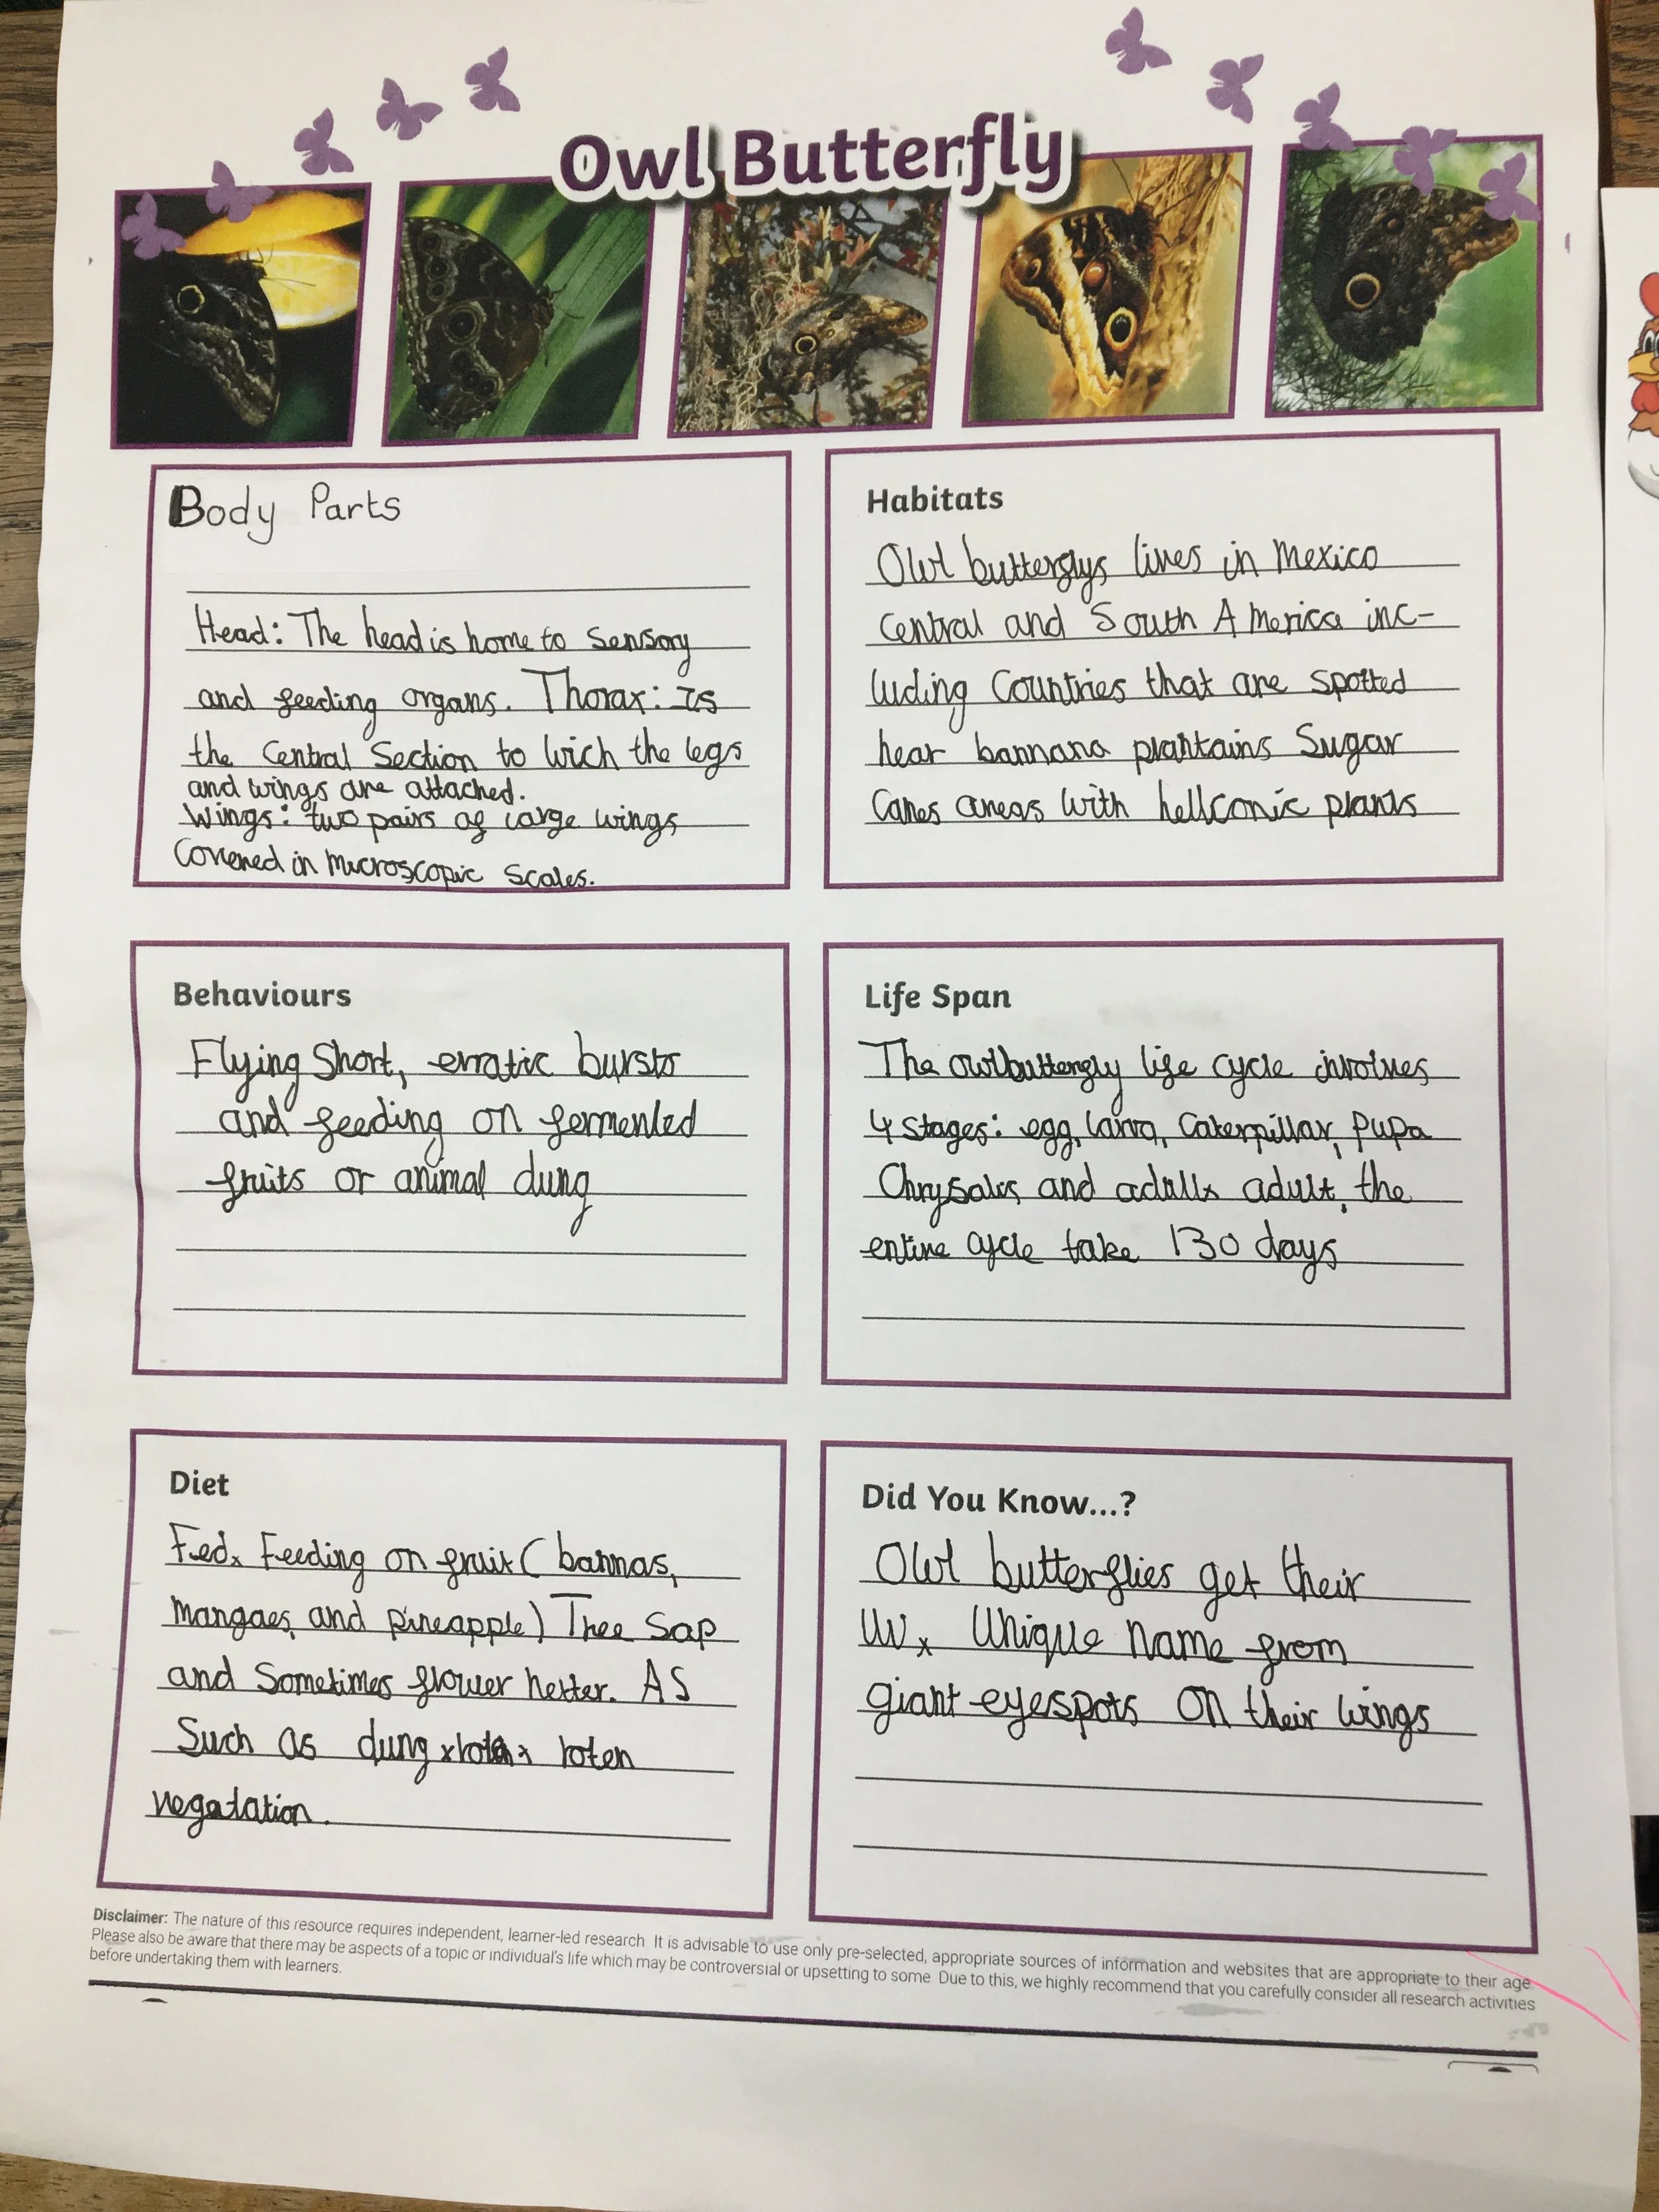 Owl Butterfly
Body Parts
Head: The head is home to Sensory
and feeding organs. Thorax: Is
the Central Section to wich the legs
and wings are attached.
Wings: two pairs of large wings
Covered in microscopic Scales.
Habitats
Owl butterflys lives in Mexico
Central and South America inc-
luding Countries that are spotted
near bannana plantains Sugar
Canes areas with hellconic plants
Behaviours
Flying Short, erratic bursts
and feeding on fermented
fruits or animal dung
Life Span
The owlbutterfly life cycle involves
4 stages: egg, larva, Caterpillar, Pupa
Chrysalis, and adult, the
entire cycle take 130 days
Diet
Fed x Feeding on fruit ( bannas,
mangoes, and pineapple) Thee Sap
and Sometimes flower netter. AS
Such as dung roten
vegatation.
Did You Know...?
Owl butterflies get their
Unique name from
giant eyespots on their wings
Disclaimer: The nature of this resource requires independent, learner-led research. It is advisable to use only pre-selected, appropriate sources of information and websites that are appropriate to their age.
Please also be aware that there may be aspects of a topic or individual's life which may be controversial or upsetting to some. Due to this, we highly recommend that you carefully consider all research activities
before undertaking them with learners.